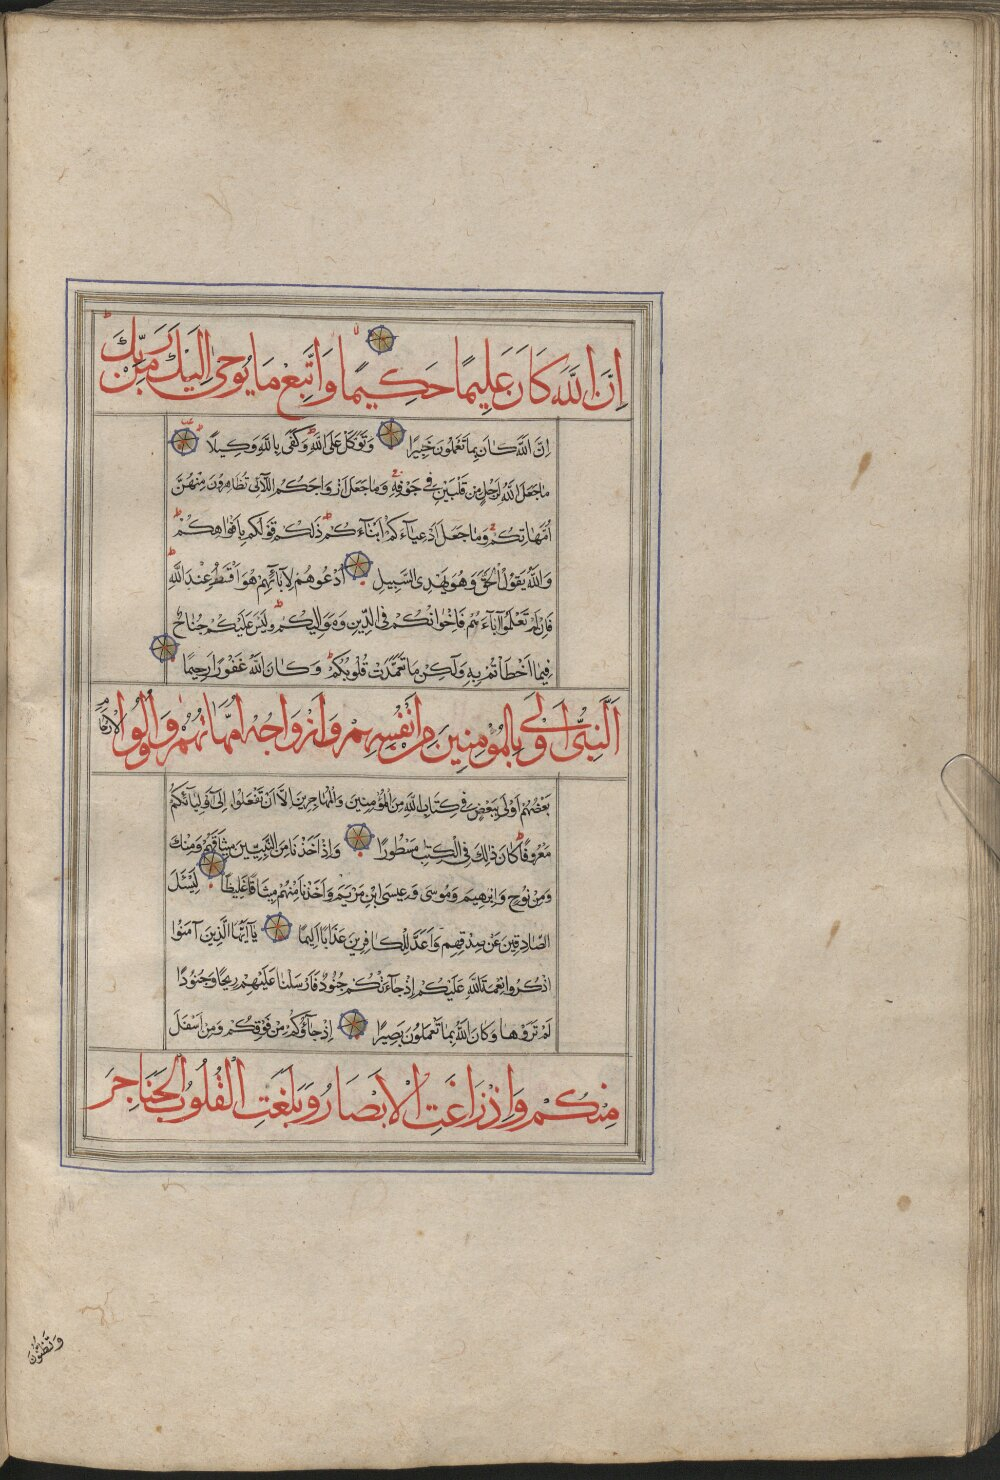 اِنَّ اللّٰهَ كَانَ عَلِيمًا حَكِيمًا وَاتَّبِعْ مَا يُوحىٰ اِلَيْكَ مِنْ رَبِّكَ
اِنَّ اللّٰهَ كَانَ بِمَا تَعْمَلُونَ خَبِيرًا وَتَوَكَّلْ عَلَى اللّٰهِ وَكَفٰى بِاللّٰهِ وَكِيلًا
مَا جَعَلَ اللّٰهُ لِرَجُلٍ مِن قَلْبَيْنِ فِي جَوْفِهِ وَمَا جَعَلَ اَزْوَاجَكُمُ اللَّآئِى تُظَاهِرُونَ مِنْهُنَّ
اُمَّهَاتِكُمْ وَمَا جَعَلَ اَدْعِيَآءَكُمْ اَبْنَآءَكُمْ ذٰلِكُمْ قَوْلُكُمْ بِاَفْوَاهِكُمْ
وَاللّٰهُ يَقُولُ الْحَقَّ وَهُوَ يَهْدِى السَّبِيلَ اُدْعُوهُمْ لِاٰبَآئِهِمْ هُوَ اَقْسَطُ عِنْدَ اللّٰهِ
فَاِنْ لَمْ تَعْلَمُوا اٰبَآءَهُمْ فَاِخْوَانُكُمْ فِى الدِّينِ وَمَوَالِيكُمْ وَلَيْسَ عَلَيْكُمْ جُنَاحٌ
فِيمَا اَخْطَاْتُمْ بِهِ وَلٰكِنْ مَا تَعَمَّدَتْ قُلُوبُكُمْ وَكَانَ اللّٰهُ غَفُورًا رَحِيمًا
اَلنَّبِىُّ اَوْلٰى بِالْمُؤْمِنِينَ مِنْ اَنْفُسِهِمْ وَاَزْوَاجُهُ اُمَّهَاتُهُمْ وَاُولُوا الْاَرْحَامِ
بَعْضُهُمْ اَوْلٰى بِبَعْضٍ فِى كِتَابِ اللّٰهِ مِنَ الْمُؤْمِنِينَ وَالْمُهَاجِرِينَ اِلَّا اَنْ تَفْعَلُوا اِلٰى اَوْلِيَآئِكُمْ
مَعْرُوفًا كَانَ ذٰلِكَ فِى الْكِتٰبِ مَسْطُورًا وَاِذْ اَخَذْنَا مِنَ النَّبِيّينَ مِيثَاقَهُمْ وَمِنْكَ
وَمِنْ نُوحٍ وَاِبْرٰهِيمَ وَمُوسَى وَعِيسَى ابْنِ مَرْيَمَ وَاَخَذْنَا مِنْهُمْ مِيثَاقًا غَلِيظًا لِيَسْئَلَ
الصَّادِقِينَ عَنْ صِدْقِهِمْ وَاَعَدَّ لِلْكَافِرِينَ عَذَابًا اَلِيمًا يَآ اَيُّهَا الَّذِينَ اٰمَنُوا
اذْكُرُوا نِعْمَةَ اللّٰهِ عَلَيْكُمْ اِذْ جَآءَتْكُمْ جُنُودٌ فَاَرْسَلْنَا عَلَيْهِمْ رِيحًا وَجُنُودًا
لَمْ تَرَوْهَا وَكَانَ اللّٰهُ بِمَا تَعْمَلُونَ بَصِيرًا اِذْ جَآؤُكُمْ مِنْ فَوْقِكُمْ وَمِنْ اَسْفَلَ
مِنْكُمْ وَاِذْ زَاغَتِ الْاَبْصَارُ وَبَلَغَتِ الْقُلُوبُ الْحَنَاجِرَ
وَتَظُنُّونَ